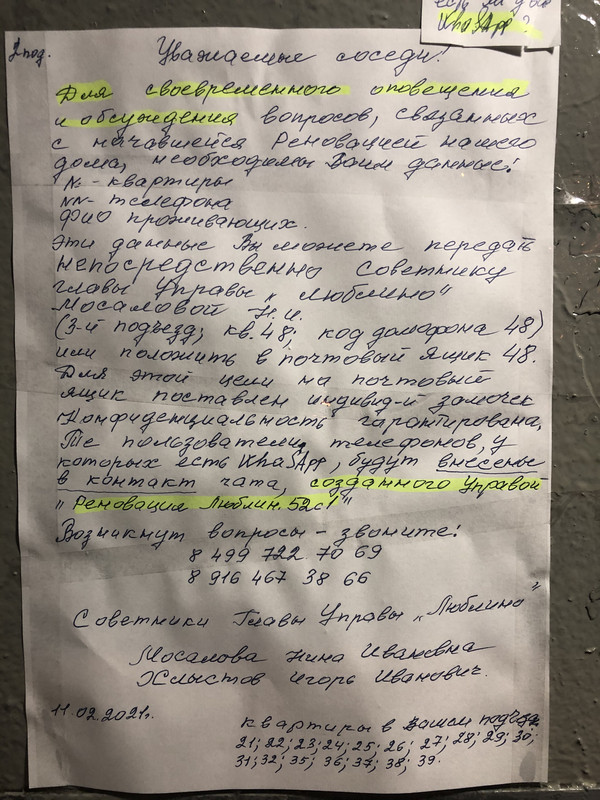 есть ли у Вас
WhaSApp?
2 под.
Уважаемые соседи!
Для своевременного оповещения
и обсуждения вопросов, связанных
с начавшейся Реновацией нашего
дома, необходимы Ваши данные:
№ - квартиры
NN - телефона
ФИО проживающих.
Эти данные Вы можете передать
непосредственно Советнику
главы Управы „Люблино"
Мосаловой Н.И.
(3-й подъезд; кв. 48; код домофона 48)
или положить в почтовый ящик 48.
Для этой цели на почтовый
ящик поставлен индивид-й замочек
Конфиденциальность гарантирована.
Те пользователи телефонов, у
которых есть WhaSApp, будут внесены
в контакт чата, созданного Управой
„Реновация Люблин. 52с1"
Возникнут вопросы - звоните!
8 499 722 70 69
8 916 467 38 66
Советники Главы Управы „Люблино"
Мосалова Нина Ивановна
Хлыстов Игорь Иванович.
11.02.2021г.
квартиры в Вашем подъезде
21; 22; 23; 24; 25; 26; 27; 28; 29; 30;
31; 32; 35; 36; 37; 38; 39.